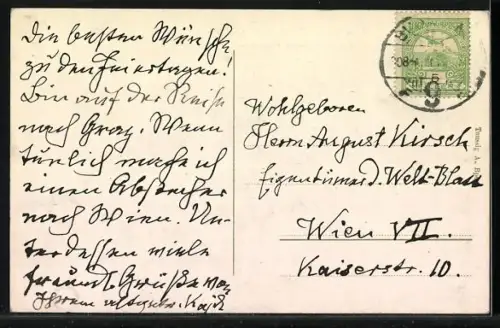 Die besten Wünsche
zu den Feiertagen!
Bin auf der Reise
nach Graz. Wenn
tunlich mache ich
einen Abstecher
nach Wien. Un-
terdessen viele
freundl. Grüße von
Ihrem
Wohlgeboren
Herrn August Kirsch
Eigentümer d. Welt-Blatt
Wien VII.
Kaiserstr. 10.
9